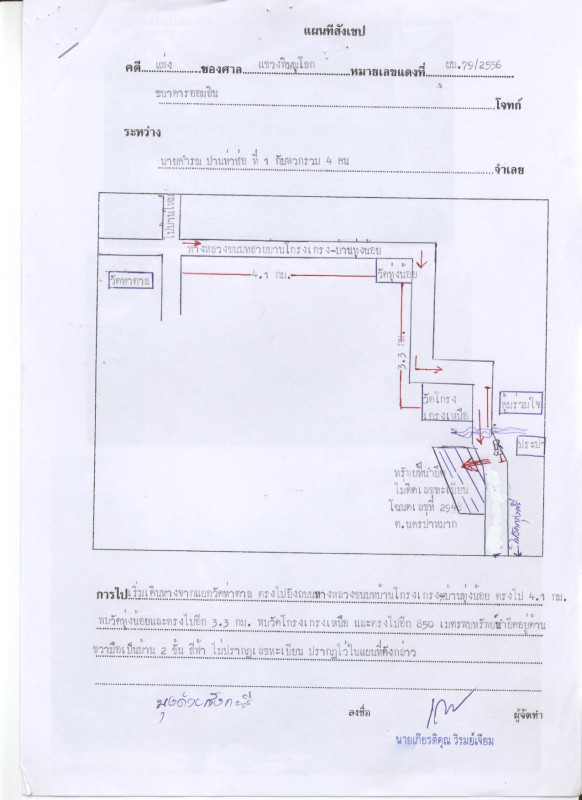 แผนที่สังเขป
คดี แพ่ง ของศาล แขวงพิษณุโลก หมายเลขแดงที่ ผบ.79/2556
ธนาคารออมสิน โจทก์
ระหว่าง
ที่ 1 กับพวกรวม 4 คน จำเลย
ไปบ้านใหม่
ทางหลวงชนบทสายบ้านโกรงเกรง-บ้านทุ่งน้อย
วัดท่าตาล
4.1 กม.
วัดทุ่งน้อย
3.3 กม.
วัดโกรง
เกรงเหนือ
ซุ้มร่วมใจ
ประปา
850
ทรัพย์ที่นำยึด
ไม่ติดเลขทะเบียน
โฉนดเลขที่ 2945
ต.นครป่าหมาก
การไป เริ่มเดินทางจากแยกวัดท่าตาล ตรงไปยังถนนทางหลวงชนบทบ้านโกรงเกรง-บ้านทุ่งน้อย ตรงไป 4.1 กม.
พบวัดทุ่งน้อยและตรงไปอีก 3.3 กม. พบวัดโกรงเกรงเหนือ และตรงไปอีก 850 เมตรพบทรัพย์นำยึดอยู่ด้าน
ขวามือเป็นบ้าน 2 ชั้น สีฟ้า ไม่ปรากฏเลขทะเบียน ปรากฏไว้ในแผนที่ดังกล่าว
ลงชื่อ ผู้จัดทำ
นายเกียรติคุณ วิรมย์เจียม